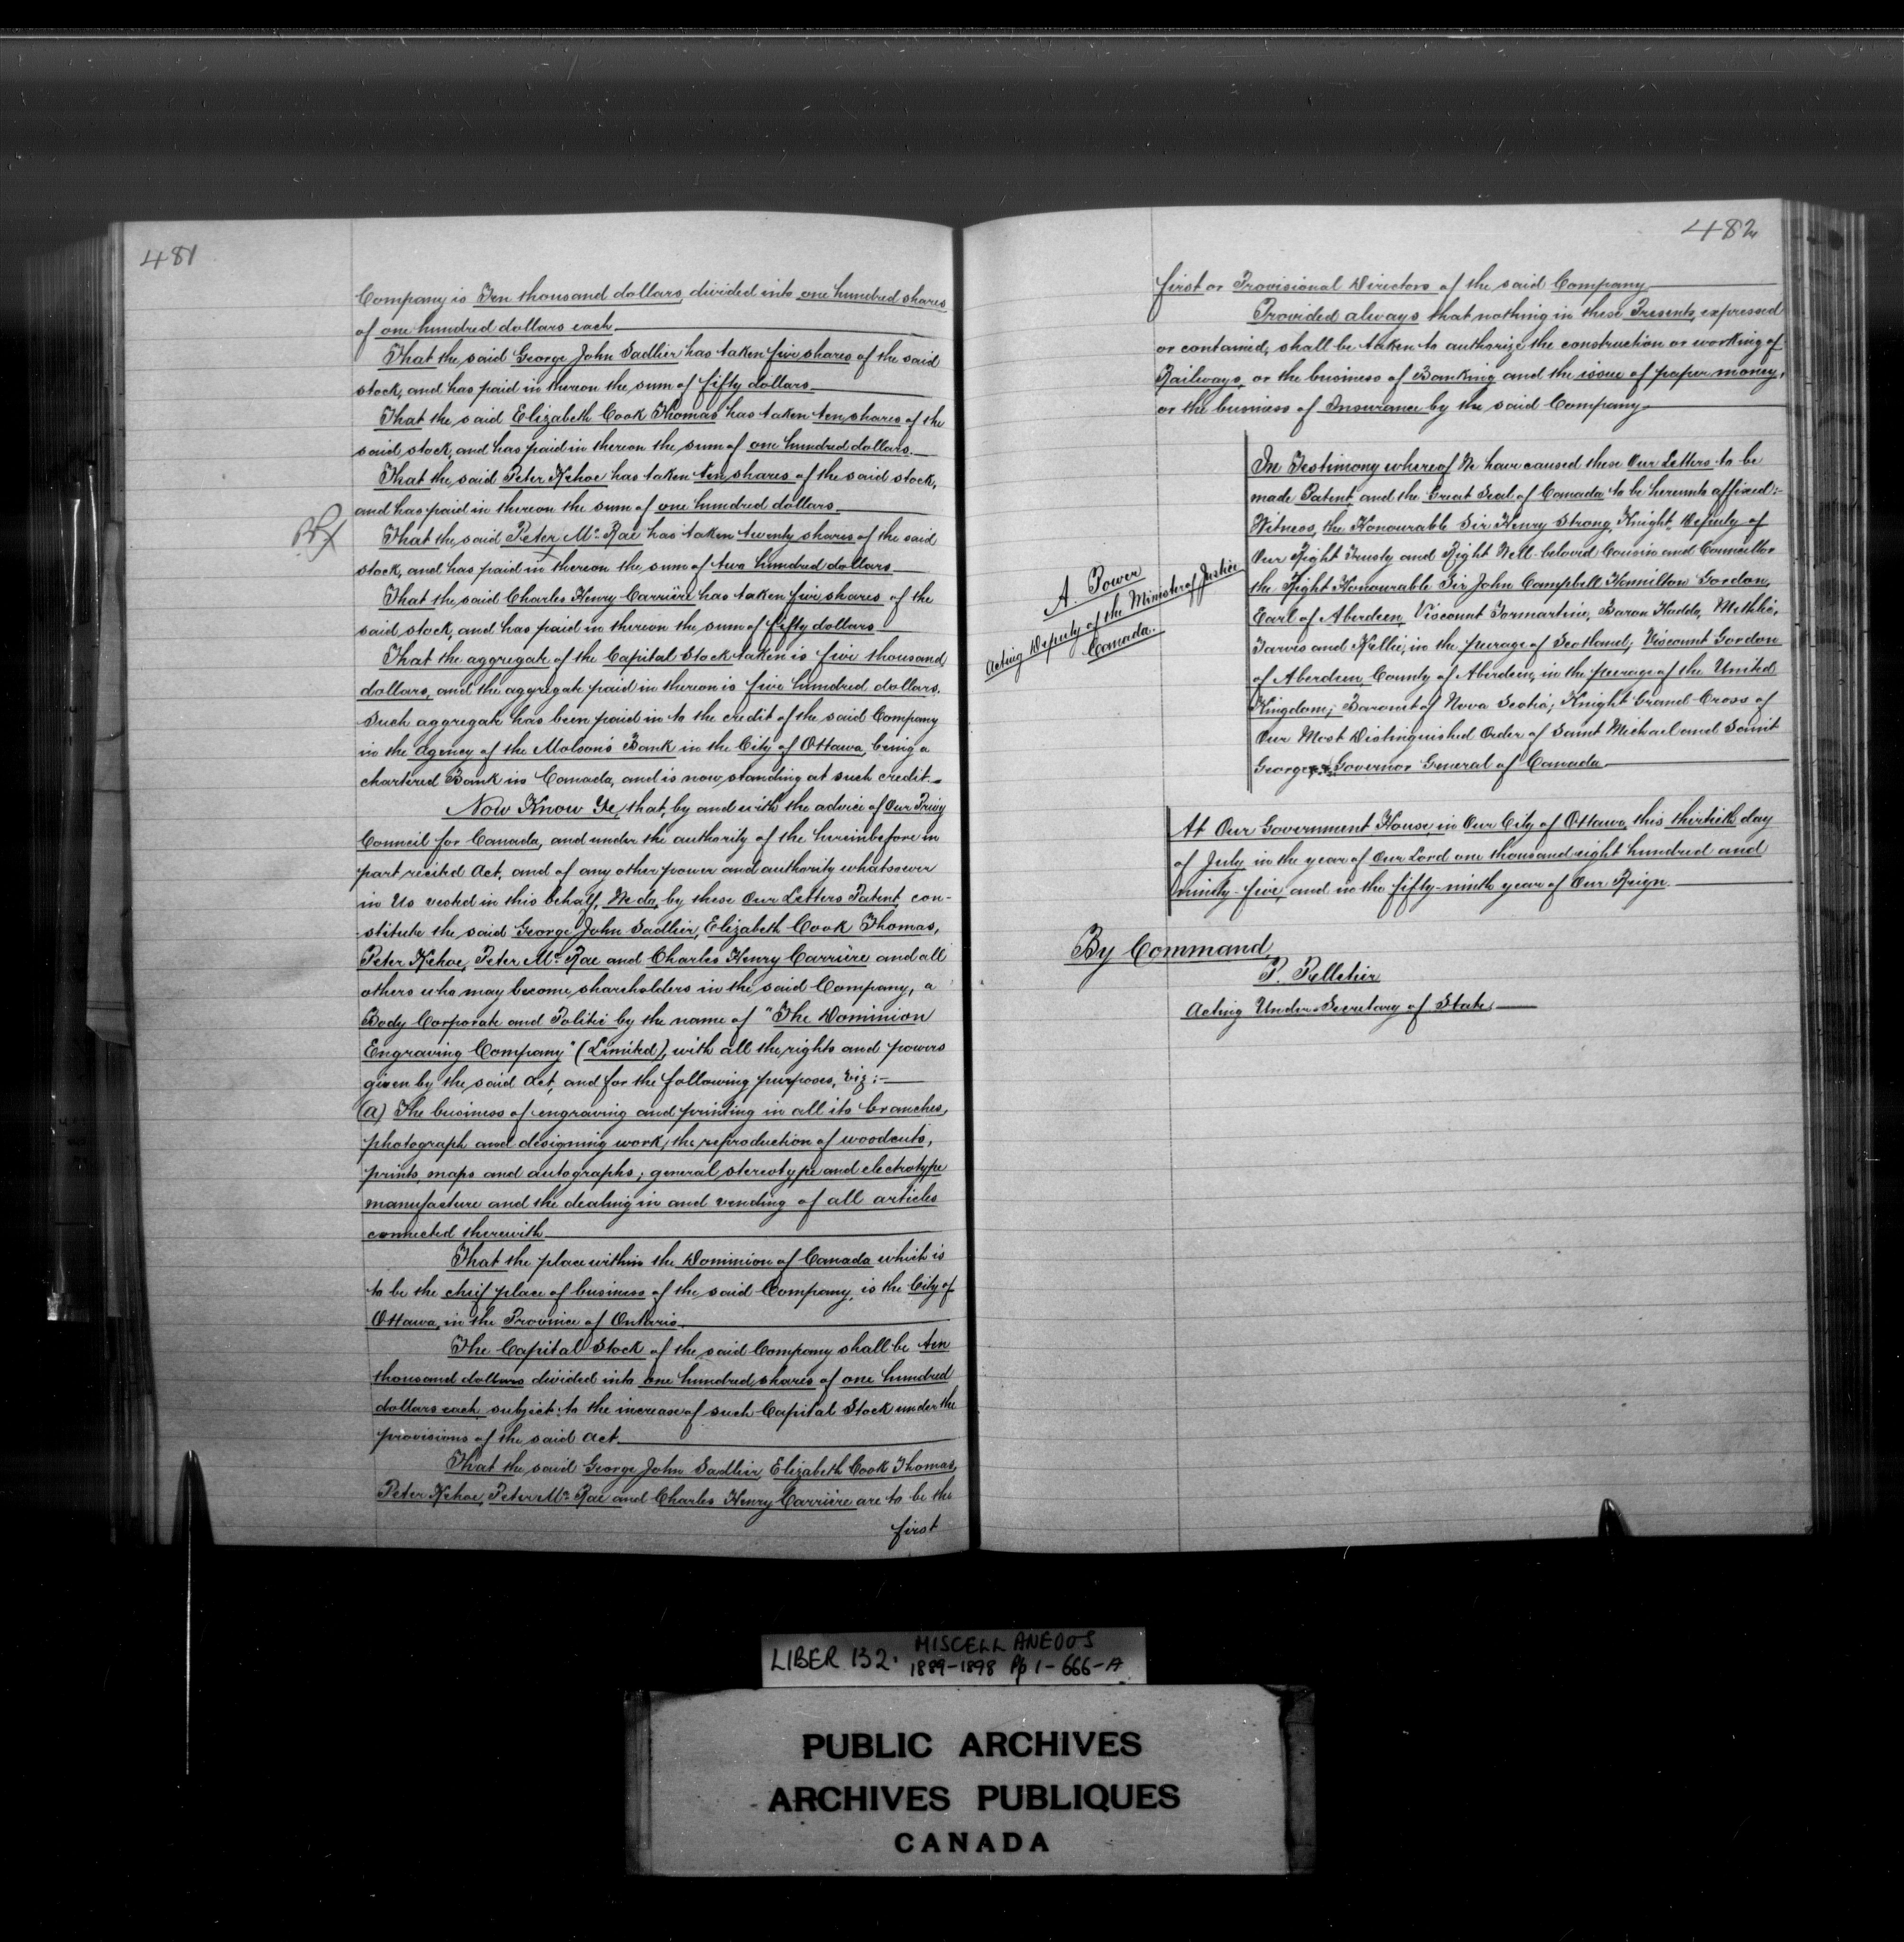 481
Company is Ten thousand dollars divided into one hundred shares
of one hundred dollars each
That the said George John Sadlier has taken five shares of the said
stock, and has paid in thereon the sum of fifty dollars
That the said Elizabeth Cook Thomas has taken ten shares of the
said stock, and has paid in thereon the sum of one hundred dollars.
That the said Peter Kehoe has taken ten shares of the said stock,
and has paid in thereon the sum of one hundred dollars
That the said Peter Mc Rae has taken twenty shares of the said
stock, and has paid in thereon the sum of two hundred dollars
That the said Charles Henry Carrière has taken five shares of the
said stock, and has paid in thereon the sum of fifty dollars
That the aggregate of the Capital Stock taken is five thousand
dollars, and the aggregate paid in thereon is five hundred dollars.
Such aggregate has been paid in to the credit of the said Company
in the Agency of the Molson's Bank in the City of Ottawa, being a
chartered Bank in Canada, and is now standing at such credit.
Now Know Ye, that, by and with the advice of Our Privy
Council for Canada, and under the authority of the hereinbefore in
part recited Act, and of any other power and authority whatsoever
in Us vested in this behalf, We do, by these Our Letters Patent, con-
stitute the said George John Sadlier, Elizabeth Cook Thomas,
Peter Kehoe, Peter Mc Rae and Charles Henry Carrière and all
others who may become shareholders in the said Company, a
Body Corporate and Politic by the name of "The Dominion
Engraving Company" (Limited), with all the rights and powers
given by the said Act, and for the following purposes, viz:—
(a) The business of engraving and printing in all its branches,
photograph and designing work, the reproduction of woodcuts,
prints, maps and autographs; general stereotype and electrotype
manufacture and the dealing in and vending of all articles
connected therewith
That the place within the Dominion of Canada which is
to be the chief place of business of the said Company, is the City of
Ottawa, in the Province of Ontario.
The Capital Stock of the said Company shall be ten
thousand dollars divided into one hundred shares of one hundred
dollars each, subject to the increase of such Capital Stock under the
provisions of the said Act.
That the said George John Sadlier, Elizabeth Cook Thomas,
Peter Kehoe, Peter Mc Rae and Charles Henry Carrière are to be the
first
482
first or Provisional Directors of the said Company
Provided always that nothing in these Presents, expressed
or contained, shall be taken to authorize the construction or working of
Railways, or the business of Banking and the issue of paper money,
or the business of Insurance by the said Company
In Testimony whereof We have caused these Our Letters to be
made Patent, and the Great Seal of Canada to be hereunto affixed:-
Witness, the Honourable Sir Henry Strong, Knight, Deputy of
Our Right Trusty and Right Well-beloved Cousin and Councillor
the Right Honourable Sir John Campbell Hamilton Gordon,
Earl of Aberdeen, Viscount Formartine, Baron Haddo, Methlic,
Tarvis and Kellie, in the peerage of Scotland; Viscount Gordon
of Aberdeen, County of Aberdeen, in the peerage of the United
Kingdom; Baronet of Nova Scotia; Knight Grand Cross of
Our Most Distinguished Order of Saint Michael and Saint
George Governor General of Canada
A. Power
Acting Deputy of the Minister of Justice
Canada.
At Our Government House, in Our City of Ottawa, this thirtieth day
of July, in the year of Our Lord one thousand eight hundred and
ninety-five, and in the fifty-ninth year of Our Reign.
By Command,
P. Pelletier
Acting Under-Secretary of State.
LIBER 132. MISCELLANEOUS
1889-1898 Pp 1-666-A
PUBLIC ARCHIVES
ARCHIVES PUBLIQUES
CANADA